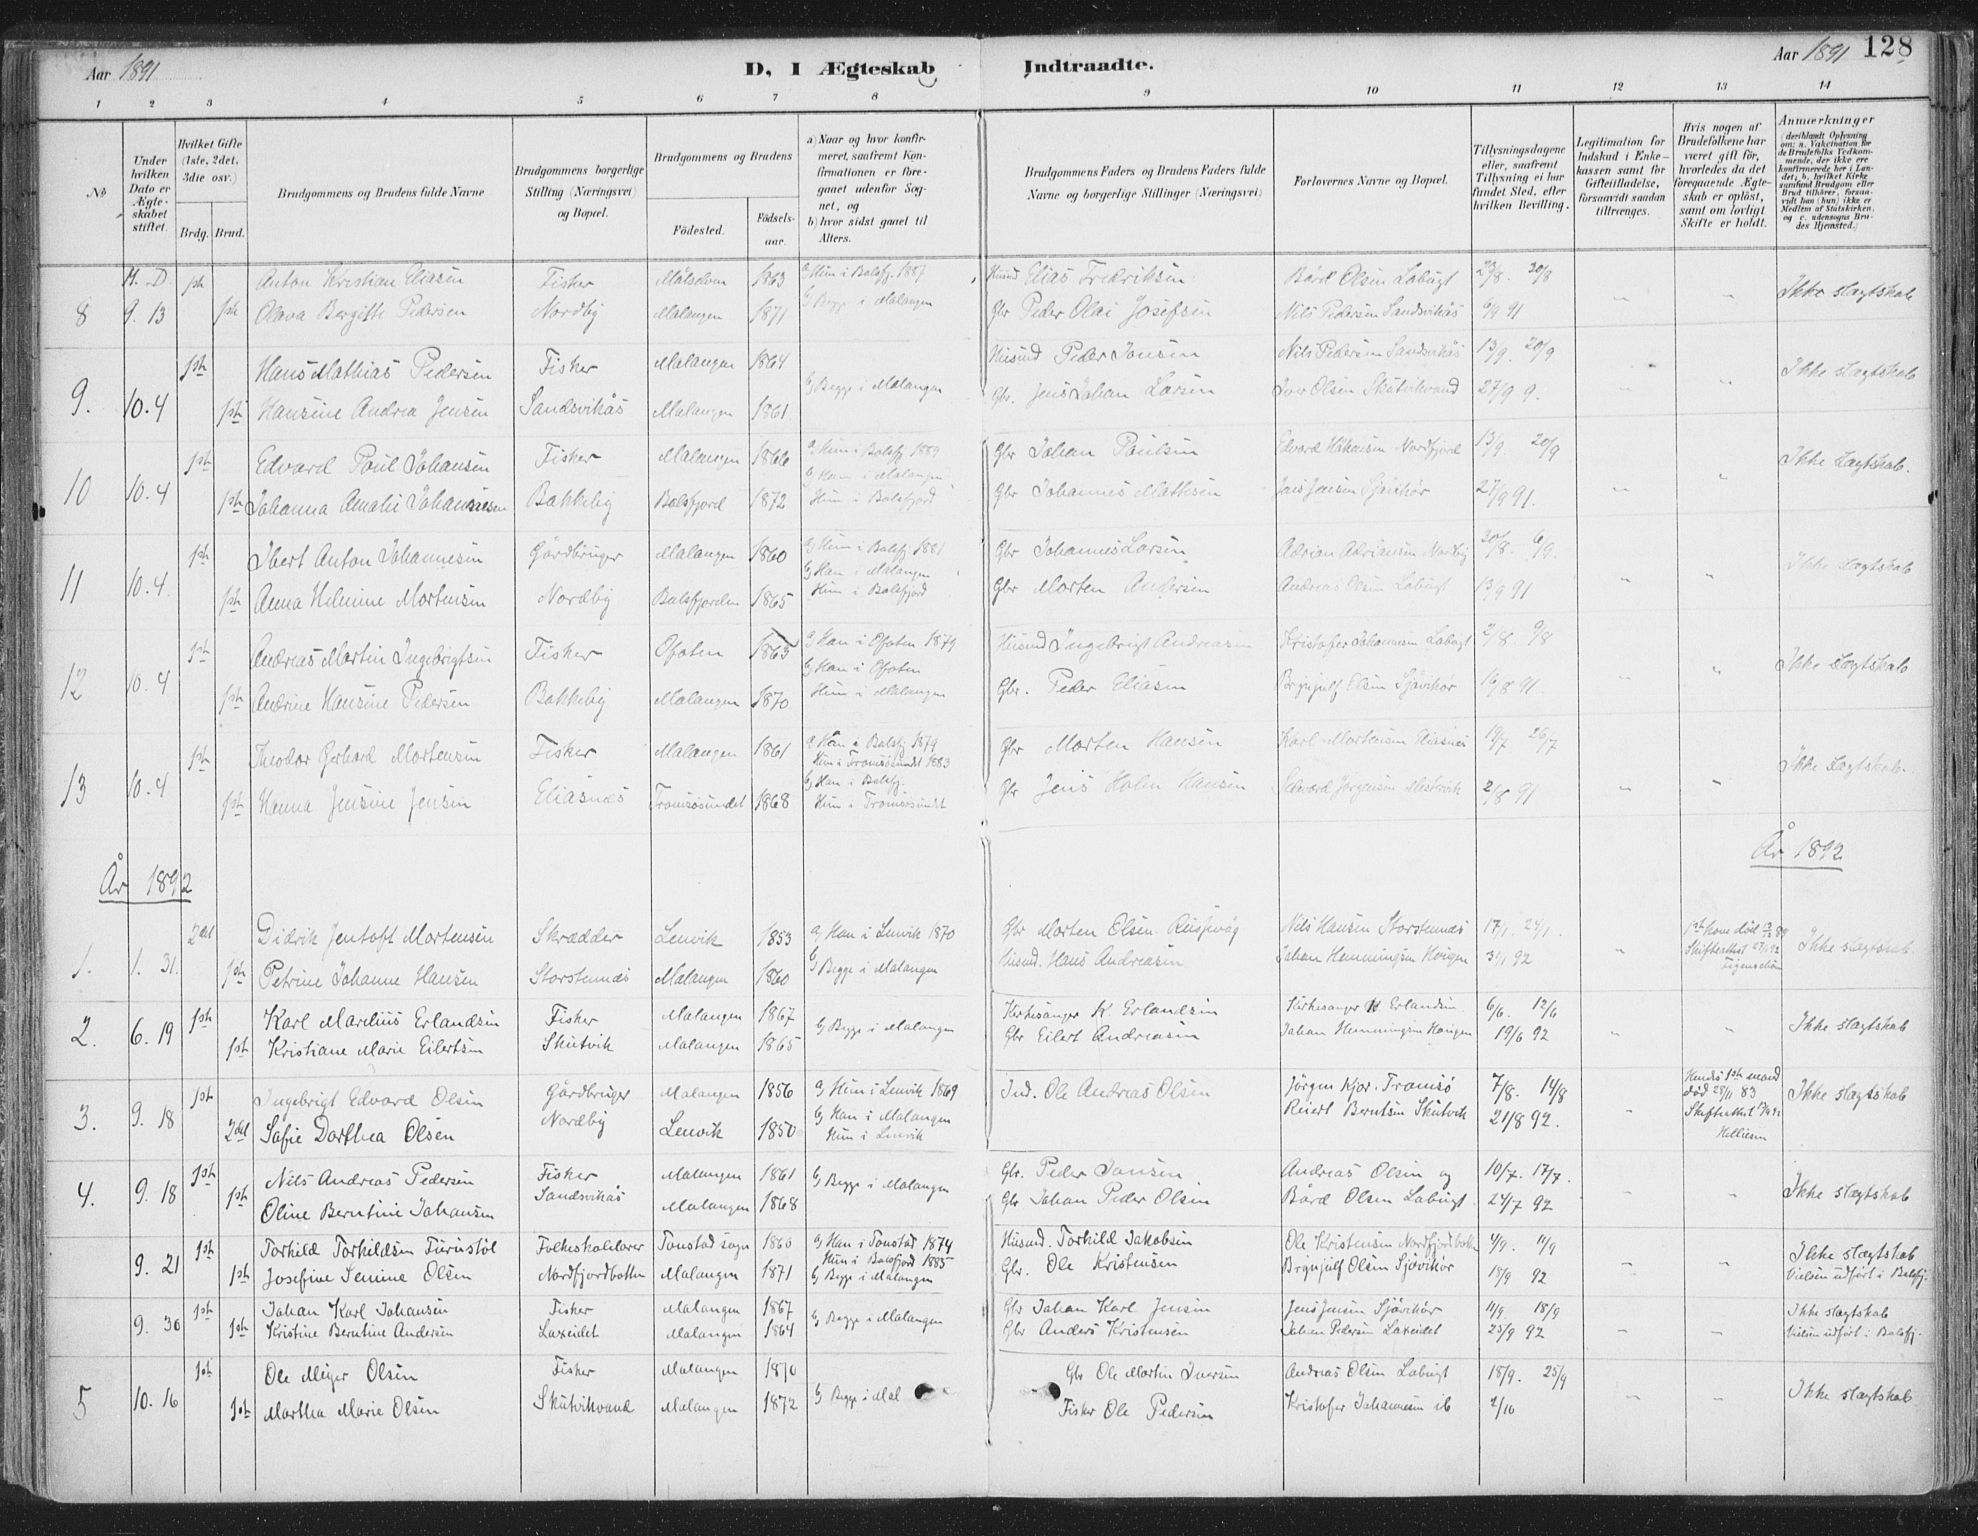 Aar 1891 D, I Ægteskab Indtraadte. Aar 1891 128
1 2 3 4 5 6 7 8 9 10 11 12 13 14
No
Under hvilken Dato er Ægteskabet stiftet.
Hvilket Gifte (1ste, 2det, 3die osv.)
Brdg. Brud.
Brudgommens og Brudens fulde Navne
Brudgommens borgerlige Stilling (Næringsvei) og Bopæl.
Brudgommens og Brudens
Födested. Födselsaar.
a) Naar og hvor konfirmeret, saafremt Konfirmationen er foregaaet udenfor Sognet, og
b) hvor sidst gaaet til Alters.
Brudgommens Faders og Brudens Faders fulde Navne og borgerlige Stillinger (Næringsvei)
Forlovernes Navne og Bopæl.
Tillysningsdagene eller, saafremt Tillysning ei har fundet Sted, efter hvilken Bevilling.
Legitimation for Indskud i Enkekassen samt for Giftetilladelse, forsaavidt saadan tiltrænges.
Hvis nogen af Brudefolkene har været gift för, hvorledes da det foregaaende Ægteskab er oplöst, samt om lovligt Skifte er holdt.
Anmærkninger
M. D. 1ste Anton Kristian Eliasen Fisker Målselven 1863 a) Hun i Balsfj. 1887 Husmd Elias Fredriksen Bård Olsen Labugt 23/8. 30/8
8 9. 13 1ste Olava Bergitte Pedersen Nordby Malangen 1871 b) Begge i Malangen Gbr Peder Olai Josefsen Nils Pedersen Sandsvikås 6/9 91 Ikke slægtskab
9. 10.4 1ste Hans Mathias Pedersen Fisker Malangen 1864 Husmd Peder Jonsen Nils Pedersen Sandsvikås 13/9. 20/9 Ikke slægtskab
1ste Hansine Andrea Jensen Sandsvikås Malangen 1861 b) Begge i Malangen Gbr. Jens Johan Larsen Iver Olsen Skutvikvand 27/9 9.
10 10.4 1ste Edvard Poul Johansen Fisker Malangen 1866 a) Hun i Balsfj 1889 Gbr Johan Poulsen Edvard Håkensen Nordfjord 13/9 20/9 Ikke slægtskab.
1ste Johanna Amalie Johannesen Bakkeby Balsfjord 1872 b) Han i Malangen Hun i Balsfjord Gbr Johannes Mathisen Jens Jensen Sjåvikør 27/9 91.
11 10.4. 1ste Ibert Anton Johannesen Gårdbruger Malangen 1860 a) Hun i Balsfj 1881 Gbr Johannes Larsen Adrian Adriansen Nordby 30/8. 6/9. Ikke slægtskab
1ste Anna Helmine Mortensen Nordby Balsfjorden 1865 b) Han i Malangen Hun i Balsfjord Gbr Morten Andersen Andreas Olsen Labugt 13/9 91
12 10.4 1ste Andreas Martin Ingebrigtsen Fisker Ofoten 1865 a) Han i Ofoten 1879 Husmd Ingebrigt Andreasen Kristofer Johannesen Labugt 2/8. 9/8 Ikke slægtskab
1ste Andrine Hansine Pedersen Bakkeby Malangen 1870 b) Han i Ofoten Hun i Malangen Gbr. Peder Eliasen Brynjulf Olsen Sjåvikør 16/8 91.
13 10.4 1ste Theodor Gerhard Mortensen Fisker Malangen 1861 a) Han i Balsfj 1879 Hun i Tromsösundet 1883 Gbr Morten Hansen Karl Mortensen Eliasnes 19/7 26/7 Ikke slægtskab.
1ste Hanna Jensine Jensen Eliasnes Tromsösundet 1868 b) Han i Balsfj. Hun i Tromsösundet Gbr Jens Holm Hansen Edvard Jørgensen Mestervik 2/8 91
År 1892 År 1892
1. 1. 31. 2det Didrik Jentoft Mortensen Skrædder Lenvik 1853 a) Han i Lenvik 1870 Gbr Morten Olsen Nils Hansen Storstennes 17/1. 24/1. 1ste kone död Ikke slægtskab
1ste Petrine Johanne Hansen Storstennes Malangen 1860 b) Begge i Malangen Husmd. Hans Andreasen Johan Hemmingsen 31/1 92 Skifteattest
2. 6. 19 1ste Karl Marelius Erlandsen Fisker Malangen 1867 b) Begge i Malangen Kirkesanger K. Erlandsen Kirkesanger K Erlandsen 6/6. 12/6 Ikke slægtskab
1ste Kristiane Marie Eilertsen Skutvik Malangen 1865 Gbr Eilert Andreasen Johan Hemmingsen 19/6 92
3. 9. 18 1ste Ingebrigt Edvard Olsen Gårdbruger Malangen 1856 a) Hun i Lenvik 1869 Ind. Ole Andreas Olsen Jörgen Kjær. Tromsö 7/8. 14/8 Hendes 1ste mand död 28/11 83 Ikke slægtskab
2det Safie Dorthea Olsen Nordby Lenvik 1850 b) Han i Malangen Hun i Lenvik Reiert Berntsen Skutvik 21/8 92. Skifteattest
4. 9. 18 1ste Nils Andreas Pedersen Fisker Malangen 1861 b) Begge i Malangen Gbr. Peder Jansen Andreas Olsen og 10/7. 17/7. Ikke slægtskab
1ste Oline Berntine Johansen Sandsvikås Malangen 1868 Gbr Johan Peder Olsen Bård Olsen Labugt 24/7 92
9. 21 1ste Torkild Torkildsen Furustöl Folkeskolelærer Tonstad sogn 1860 a) Han i Tonstad 1874 Hun i Balsfjord 1885 Husmd. Torkild Jakobsen Ole Kristensen Nordfjordbotten 4/9. 11/9 Ikke slægtskab
1ste Josefine Senine Olsen Nordfjordbotten Malangen 1871 b) Begge i Malangen Gbr. Ole Kristensen Brynjulf Olsen Sjåvikør 18/9 92 Vielsen udfört i Balsfj.
9. 30 1ste Johan Karl Johansen Fisker Malangen 1867 b) Begge i Malangen Gbr Johan Karl Jensen Jens Jensen Sjåvikør 11/9 18/9 Ikke slægtskab
1ste Kristine Berntine Andersen Laxeidet Malangen 1864 Gbr Anders Kristensen Johan Pedersen Laxeidet 25/9 92 Vielsen udfört i Balsfj.
5 10. 16 1ste Ole Meyer Olsen Fisker Malangen 1870 b) Begge i Mal Gbr Ole Martin Iversen Andreas Olsen Labugt 18/9. 25/9 Ikke slægtskab
1ste Martha Marie Olsen Skutvikvand Malangen 1872 Fisker Ole Pedersen Kristofer Johannesen ib 2/10